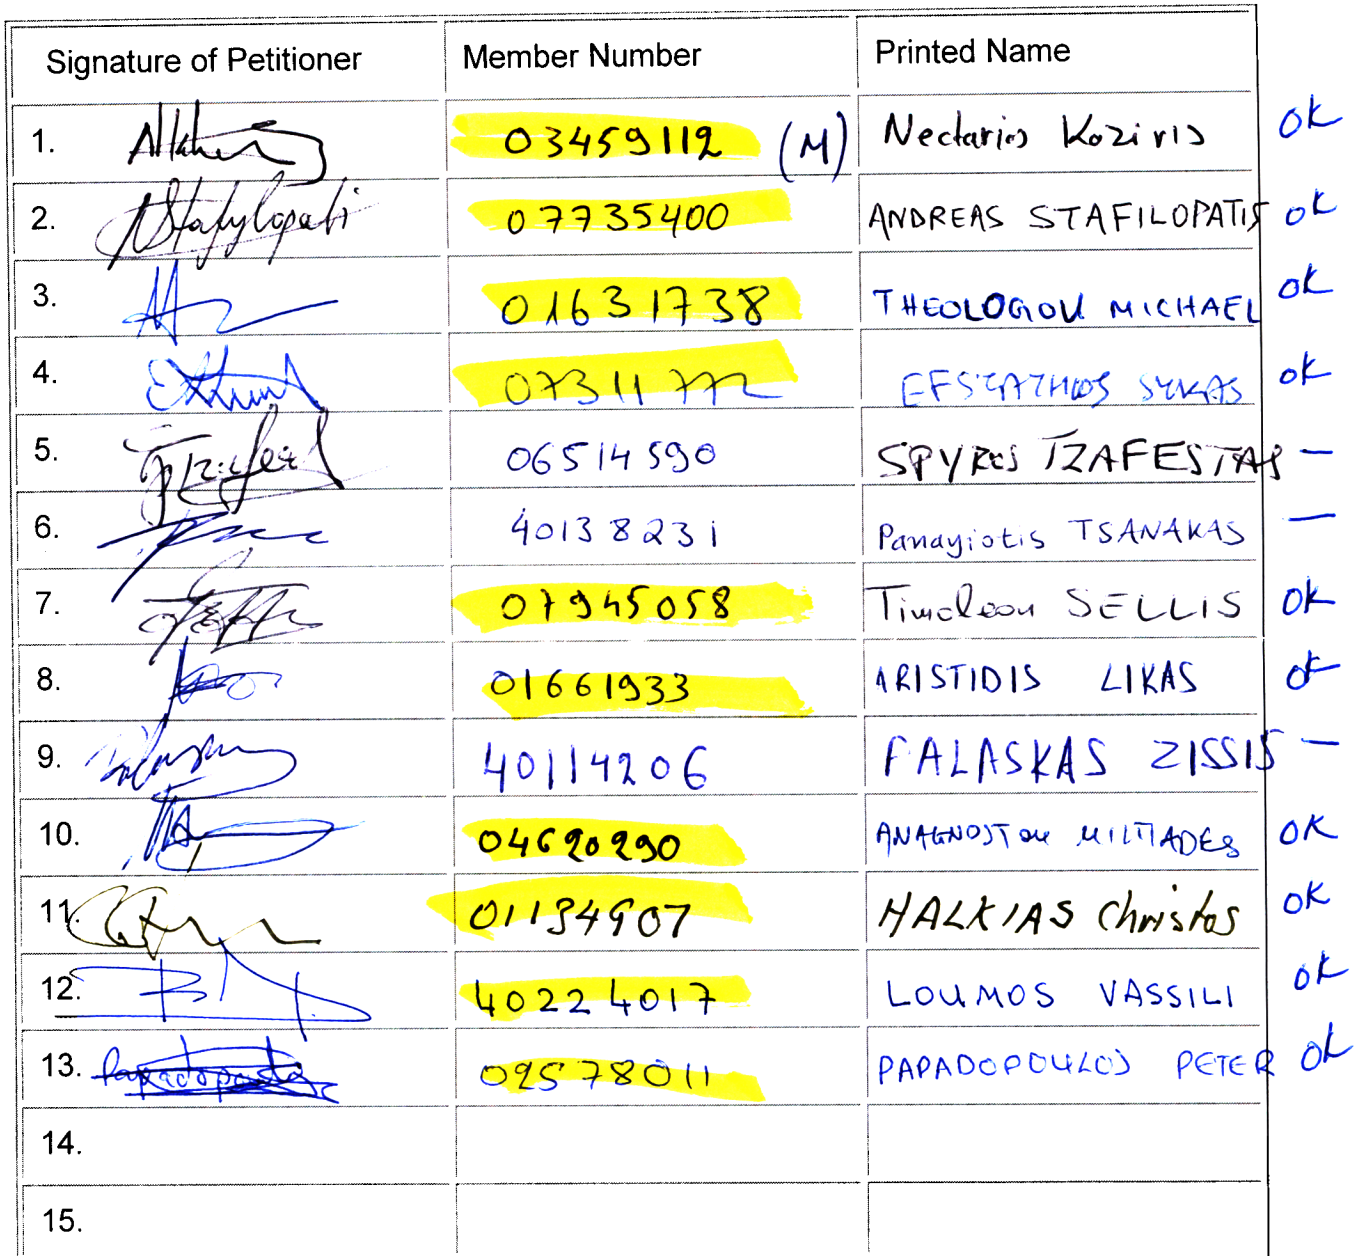 Signature of Petitioner Member Number Printed Name
1. 03459112 (M) Nectarios Koziris OK
2. Stafylopati 07735400 ANDREAS STAFILOPATIS OK
3. 01631738 THEOLOGOU MICHAEL OK
4. 07311772 EFSTATHIOS SYKAS OK
5. 06514590 SPYROS TZAFESTAS –
6. 40138231 Panayiotis TSANAKAS –
7. 07945058 Timoleon SELLIS OK
8. 01661933 ARISTIDIS LIKAS OK
9. 40114206 FALASKAS ZISSIS –
10. 04620290 ANAGNOSTOU MILTIADES OK
11. 01134907 HALKIAS Christos OK
12. 40224017 LOUMOS VASSILI OK
13. 02578011 PAPADOPOULOS PETER OK
14.
15.